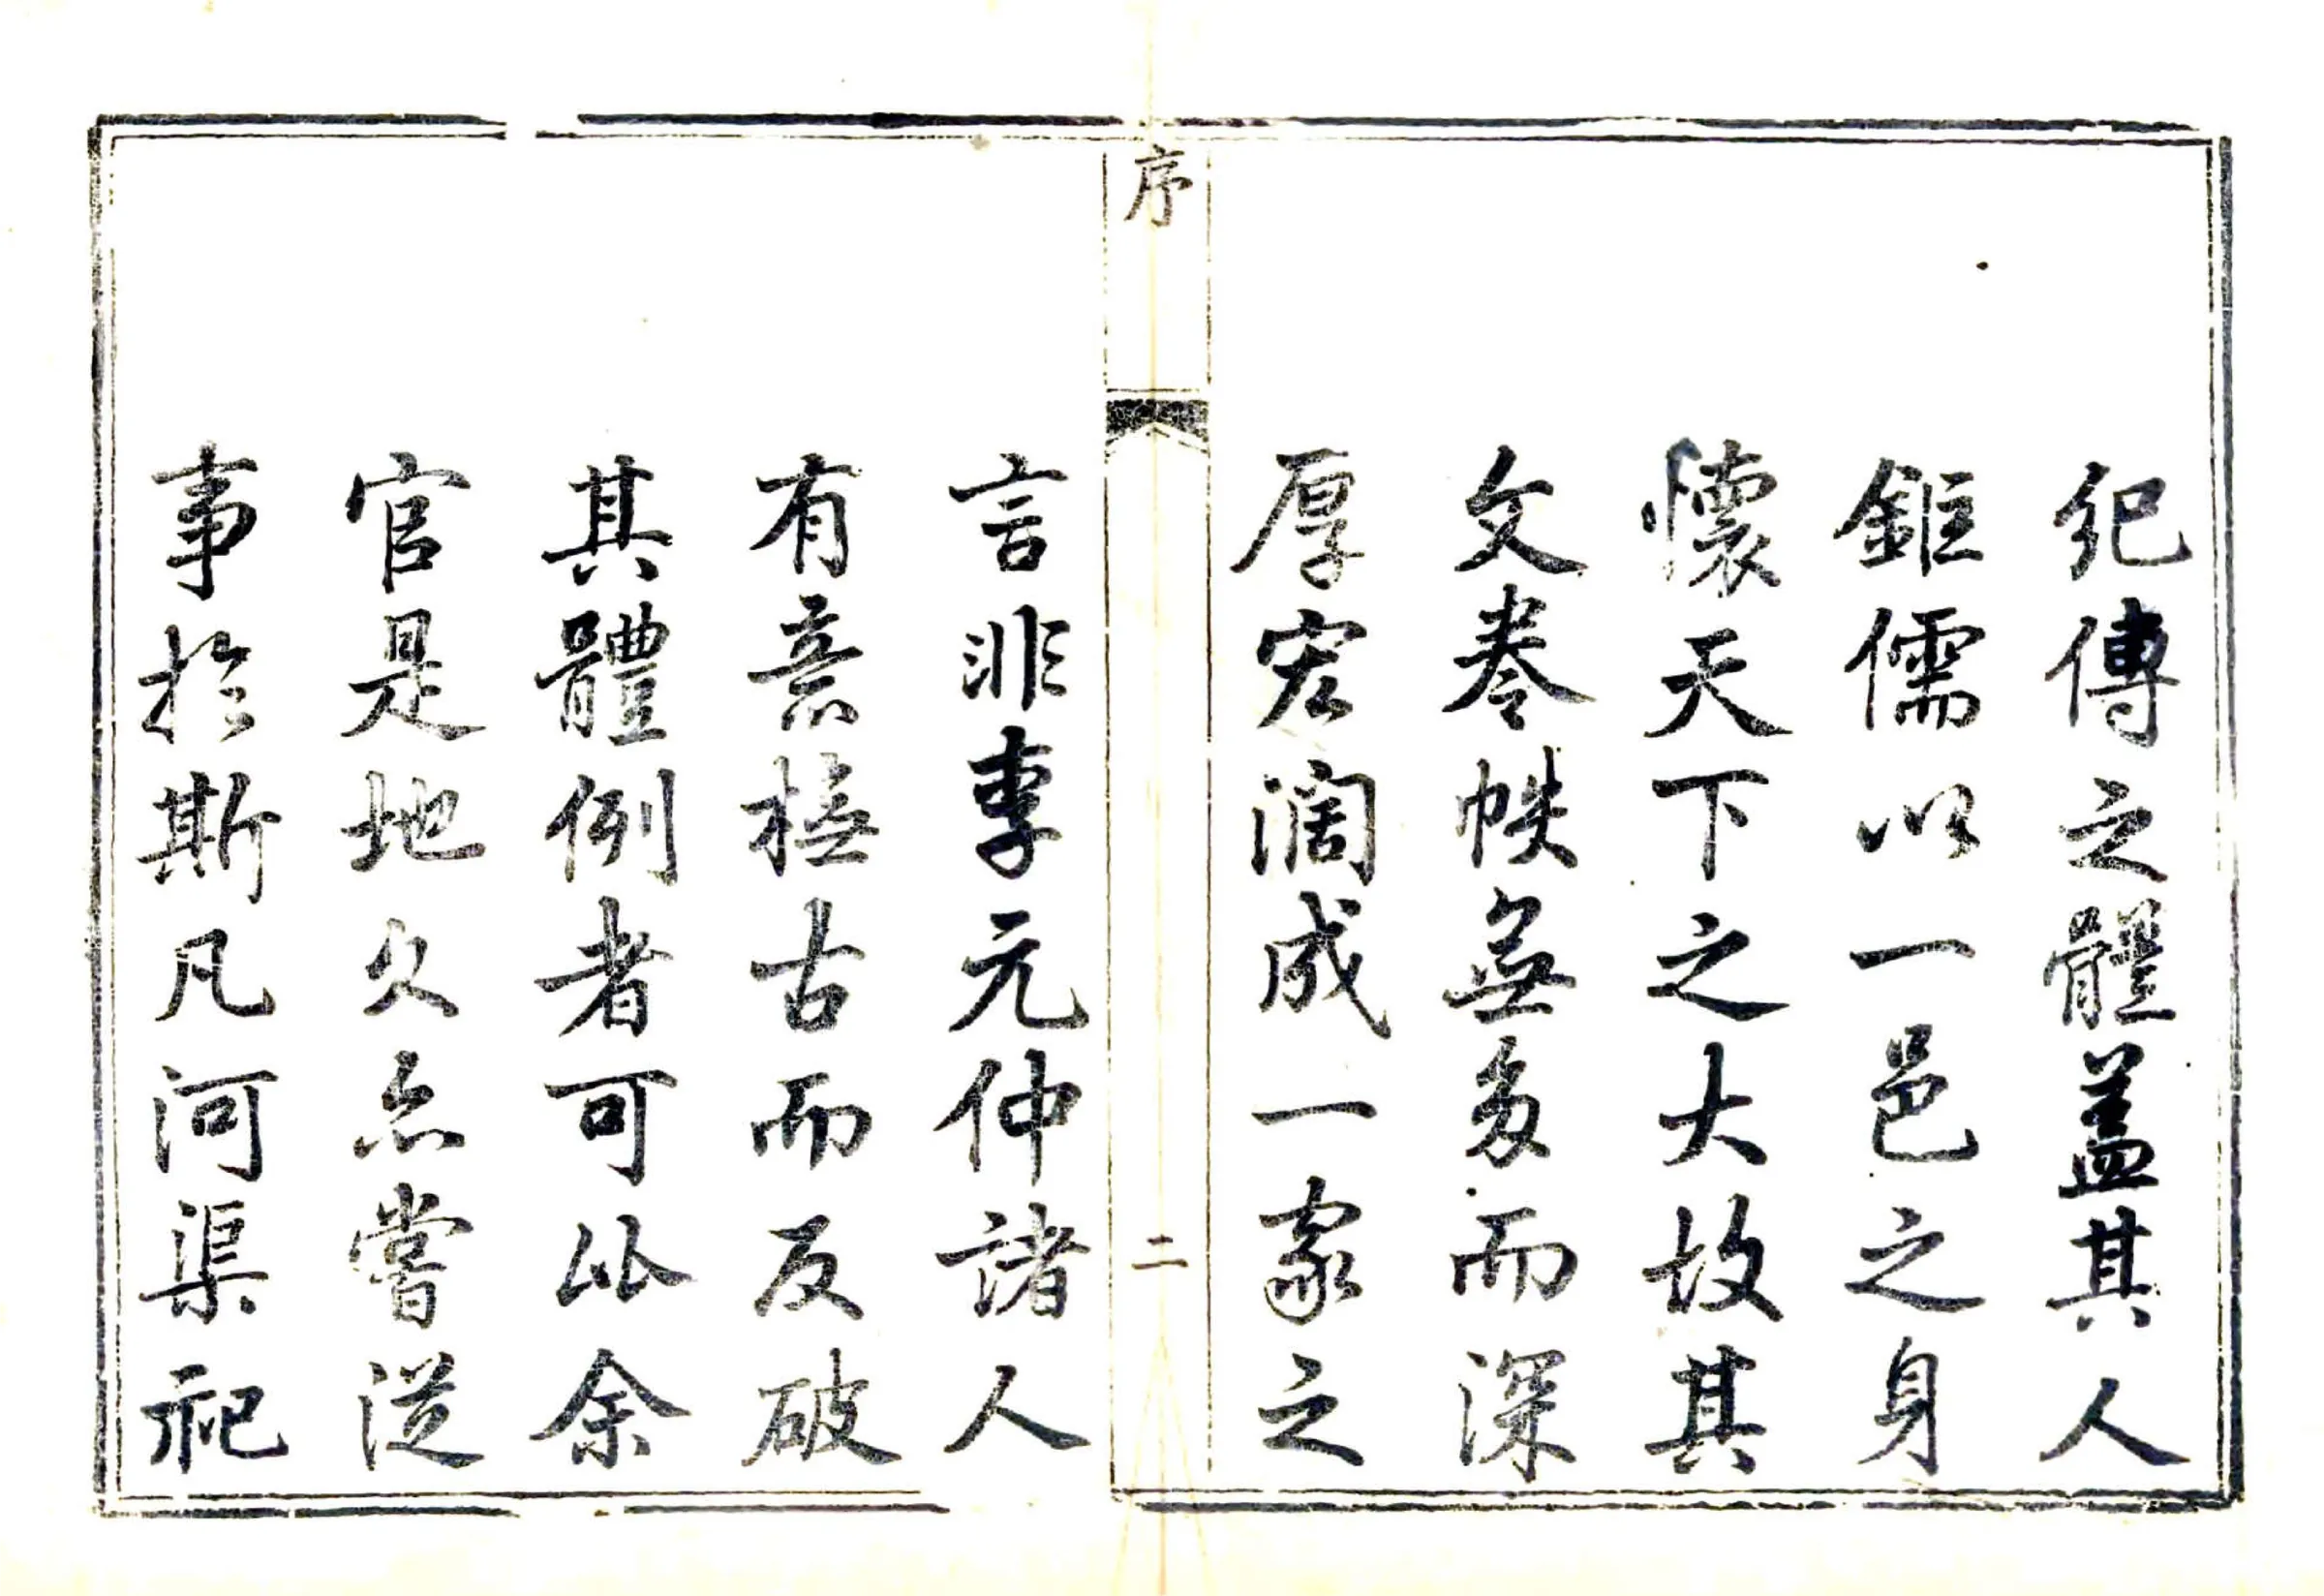 紀傳之體蓋其人
鉅儒以一邑之身
懷天下之大故其
文卷帙無多而深
厚宏濶成一家之
序
二
言非李元仲諸人
有意橅古而反破
其體例者可比余
官是地久亦嘗從
事於斯凡河渠祀